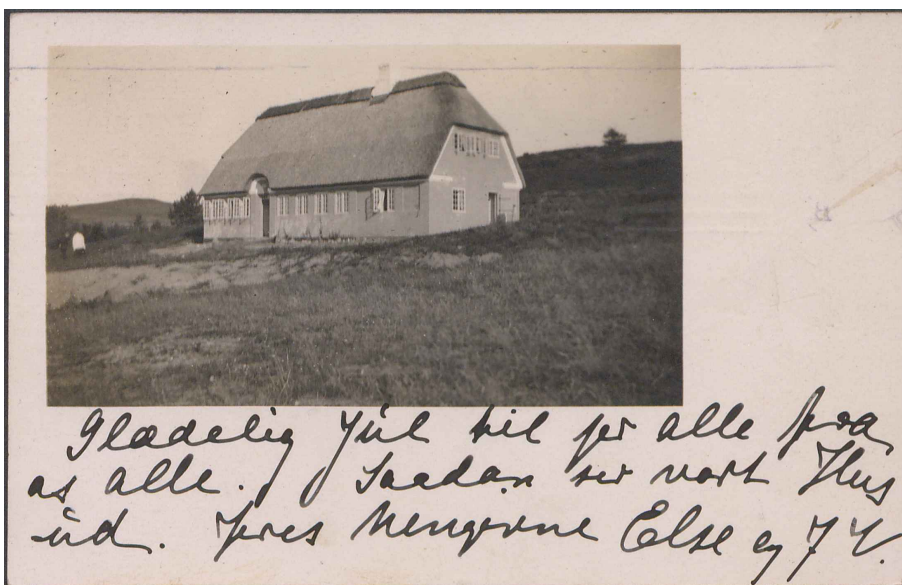 Glædelig Jul til jer alle fra
os alle. Saadan ser vort Hus
ud. Jeres hengivne Else og J V.